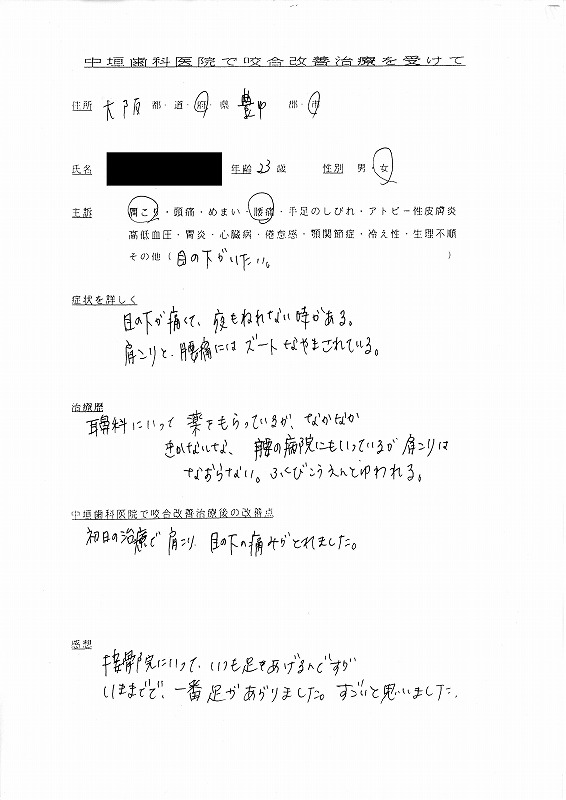 中垣歯科医院で咬合改善治療を受けて
住所 大阪 都・道・府・県 豊中 郡・市
氏名 年齢 23 歳 性別 男・女
主訴 肩こり・頭痛・めまい・腰痛・手足のしびれ・アトピー性皮膚炎
高低血圧・胃炎・心臓病・倦怠感・顎関節症・冷え性・生理不順
その他（目の下がいたい。）
症状を詳しく
目の下が痛くて、夜もねれない時がある。
肩こりと、腰痛にはズートなやまされている。
治療歴
耳鼻科にいって薬をもらっているが、なかなか
きかないな、腰の病院にもいっているが肩こりは
なおらない。ふくびこうえんとゆわれる。
中垣歯科医院で咬合改善治療後の改善点
初日の治療で肩こり、目の下の痛みがとれました。
感想
接骨院にいって、いつも足をあげるんですが
いままでで、一番足があがりました。すごいと思いました。